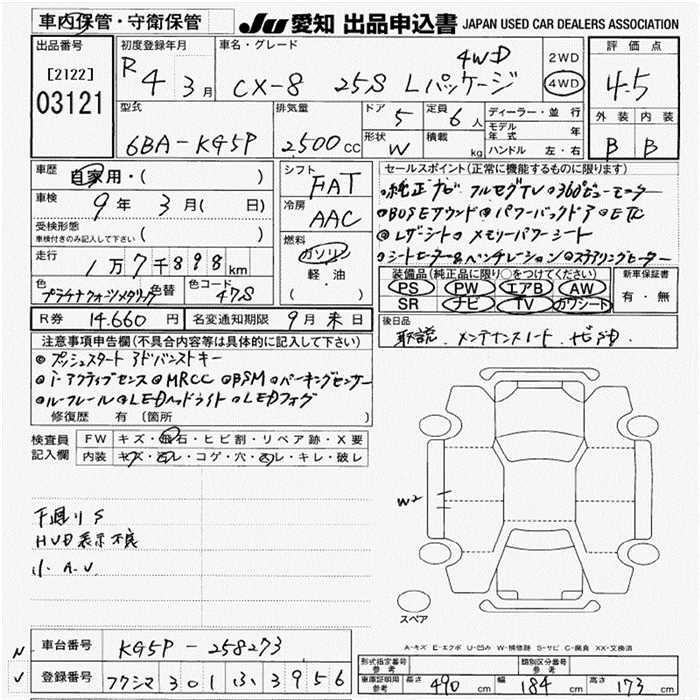 車内保管・守衛保管
JU 愛知 出品申込書 JAPAN USED CAR DEALERS ASSOCIATION
出品番号
[2122]
03121
初度登録年月
R 4 3月
車名・グレード
CX-8 25S Lパッケージ 4WD
2WD
4WD
評価点
4.5
外装 内装
B B
型式
6BA-KG5P
排気量
2500cc
ドア 5
定員 6人
形状 W
積載 kg
ディーラー・並行
モデル年式 年
ハンドル 左・右
車歴
自家用・( )
車検
9年 3月( 日)
受検形態
車検付きのみ記入して下さい ( )
走行
1万7千898km
色
プラチナクォーツメタリック
色替
色コード
47S
シフト
FAT
冷房
AAC
燃料
ガソリン
軽・油
( )
セールスポイント(正常に機能するものに限ります)
◎純正ナビ フルセグTV ◎360°ビューモニター
◎BOSEサウンド ◎パワーバックドア ◎ETC
◎レザーシート ◎メモリーパワーシート
◎シートヒーター&ベンチレーション ◎ステアリングヒーター
装備品(純正品に限り○をつけてください)
PS PW エアB AW
SR ナビ TV カワシート
新車保証書
有・無
R券 14,660円
名変通知期限 9月末日
後日品
取説. メンテナンスノート.
注意事項申告欄(不具合内容等は具体的に記入して下さい)
◎プッシュスタート アドバンストキー
◎i-アクティブセンス ◎MRCC ◎BSM ◎パーキングセンサー
◎ルーフレール ◎LEDヘッドライト ◎LEDフォグ
修復歴 有 〔箇所 〕
検査員記入欄
FW キズ・飛石・ヒビ割・リペア跡・X要
内装 キズ・汚レ・コゲ・穴・凹レ・キレ・破レ
下廻りS
HUD表示不良
小A.U.
W2
スペア
A-キズ E-エクボ U-凹み W-補修跡 S-サビ C-腐食 XX-交換済
車台番号 KG5P-258273
登録番号 フクシマ 301 ふ 3956
形式指定番号 参考
類別区分番号 参考
車庫証明用 参考 長さ 490cm 幅 184cm 高さ 173cm